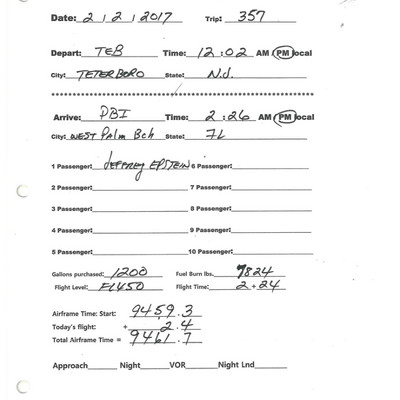 Date: 2/2/2017 Trip: 357
Depart: TEB Time: 12:02 AM PM local
City: TETERBORO State: N.J.
Arrive: PBI Time: 2:26 AM PM local
City: WEST Palm Bch State: FL
1 Passenger: JEFFREY EPSTEIN 6 Passenger:
2 Passenger: 7 Passenger:
3 Passenger: 8 Passenger:
4 Passenger: 9 Passenger:
5 Passenger: 10 Passenger:
Gallons purchased: 1200 Fuel Burn lbs. 7824
Flight Level: FL450 Flight Time: 2+24
Airframe Time: Start: 9459.3
Today's flight: + 2.4
Total Airframe Time = 9461.7
Approach Night VOR Night Lnd